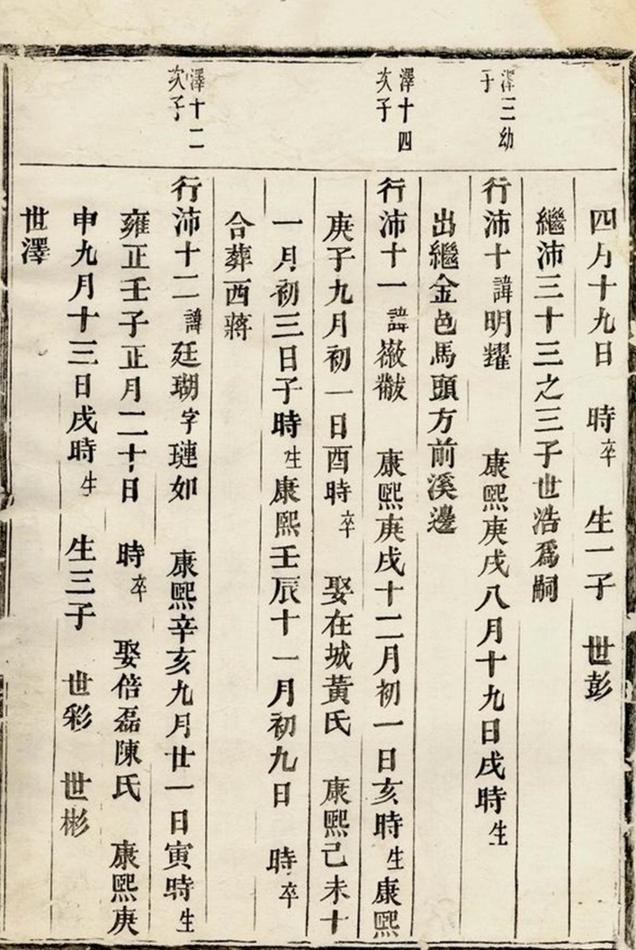 四月十九日　時卒　生一子　世彭
繼沛三十三之三子世浩爲嗣
澤三幼
子
行沛十諱明耀　康熙庚戌八月十九日戌時生
出繼金邑馬頭方前溪邊
澤十四
次子
行沛十一諱徽黻　康熙庚戌十二月初一日亥時生康熙
庚子九月初一日酉時卒　娶在城黃氏　康熙己未十
一月初三日子時生康熙壬辰十一月初九日　時卒
合葬西蔣
澤十二
次子
行沛十二諱廷瑚字璉如　康熙辛亥九月廿一日寅時生
雍正壬子正月二十日　時卒　娶倍磊陳氏　康熙庚
申九月十三日戌時生　生三子　世彩　世彬
世澤